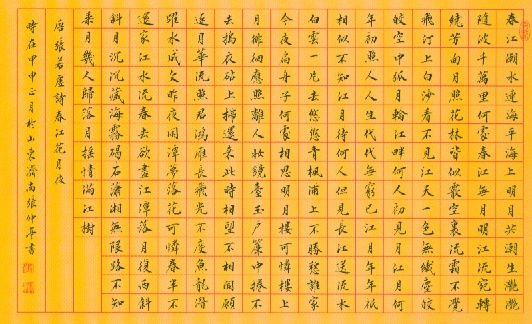 春江潮水連海平海上明月共潮生灩灩
隨波千萬里何處春江無月明江流宛轉
繞芳甸月照花林皆似霰空裏流霜不覺
飛汀上白沙看不見江天一色無纖塵皎
皎空中孤月輪江畔何人初見月江月何
年初照人人生代代無窮已江月年年祇
相似不知江月待何人但見長江送流水
白雲一片去悠悠青楓浦上不勝愁誰家
今夜扁舟子何處相思明月樓可憐樓上
月徘徊應照離人妝鏡臺玉戶簾中捲不
去搗衣砧上拂還來此時相望不相聞願
逐月華流照君鴻雁長飛光不度魚龍潛
躍水成文昨夜閒潭夢落花可憐春半不
還家江水流春去欲盡江潭落月復西斜
斜月沉沉藏海霧碣石瀟湘無限路不知
乘月幾人歸落月搖情滿江樹
唐張若虛詩春江花月夜
時在甲申正月於山東濟南張仲亭書